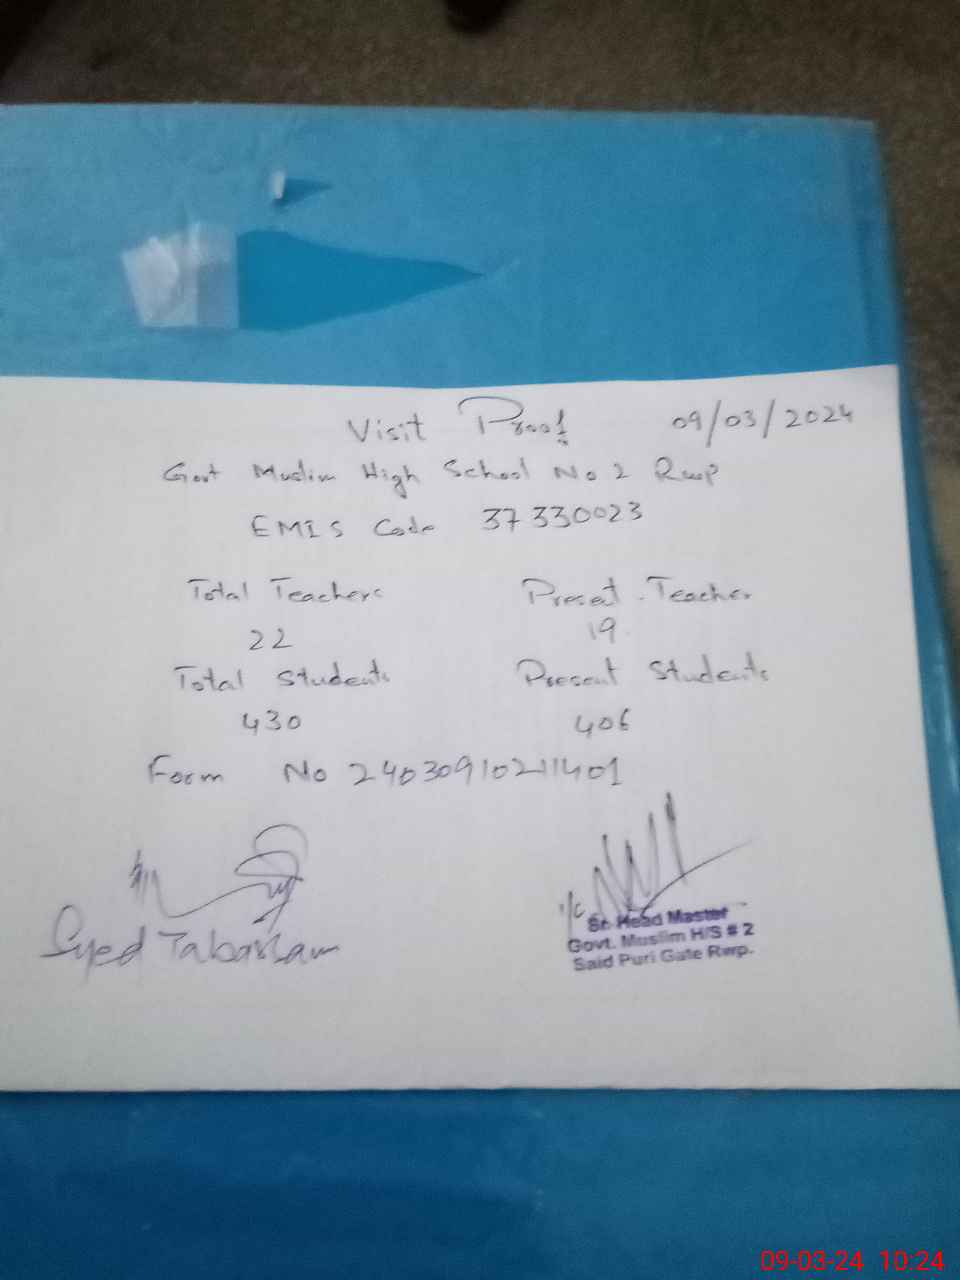 Visit Proof 09/03/2024
Govt Muslim High School No 2 Rwp
EMIS Code 37330023
Total Teachers Present Teacher
22 19
Total Students Present Students
430 406
Form No 24030910211401
Syed
I/C
Sr. Head Master
Govt. Muslim H/S # 2
Said Puri Gate Rwp.
09-03-24 10:24